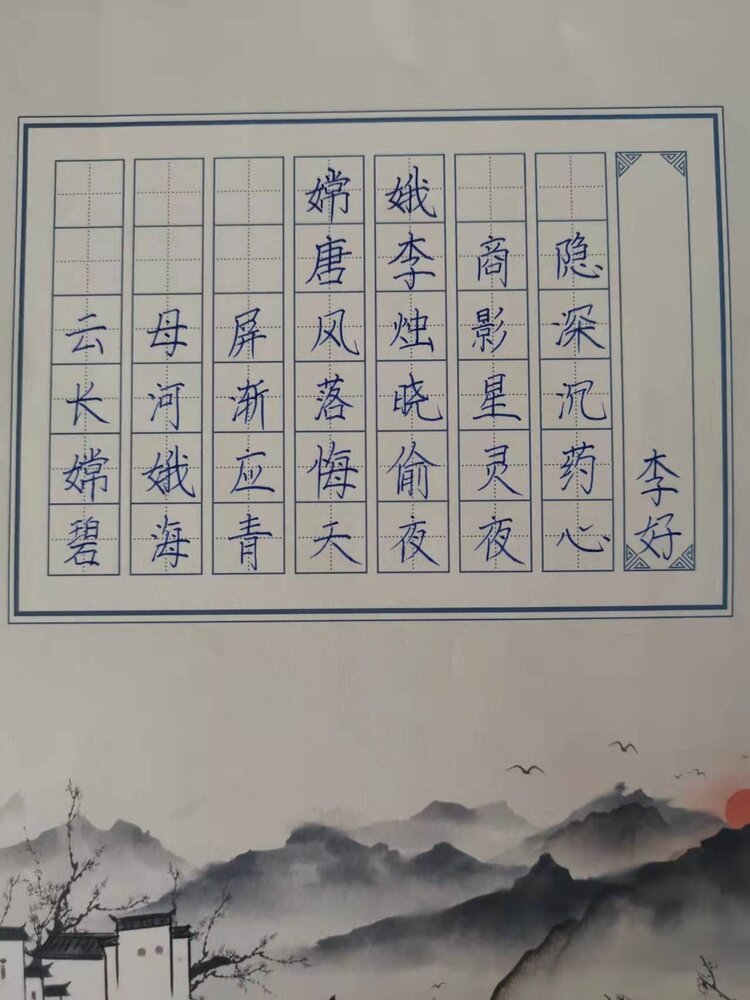 嫦娥
唐李商隐
云母屏风烛影深
长河渐落晓星沉
嫦娥应悔偷灵药
碧海青天夜夜心
李好